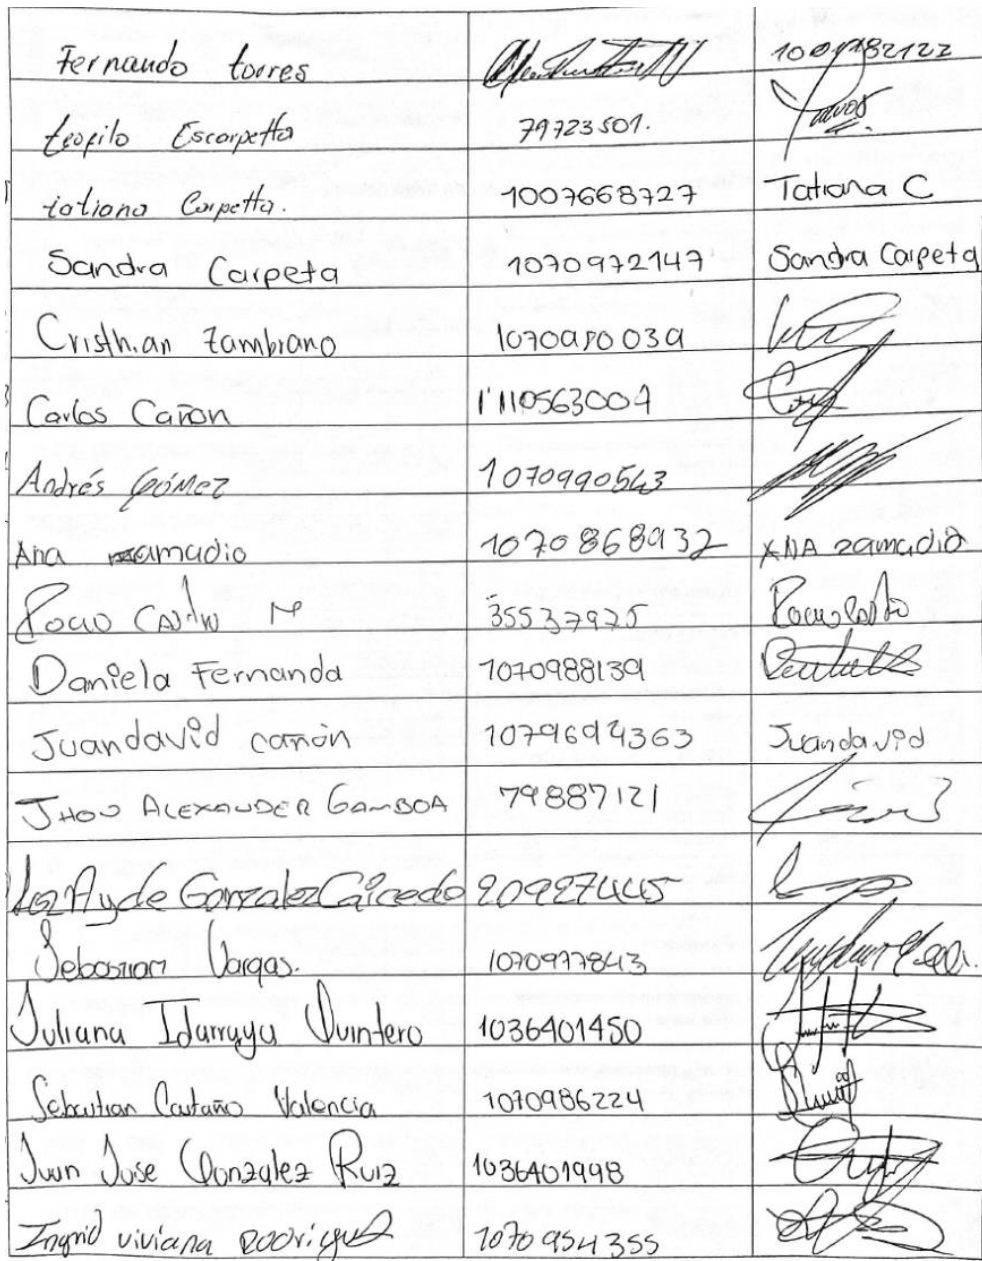 Fernando torres 1007782122
teofilo Escarpetta 79723501.
tatiana Carpetta. 1007668727 Tatiana C
Sandra Carpeta 1070972147 Sandra Carpeta
Cristhian Zambrano 1070980039
Carlos Cañon 1110563009
Andrés Gómez 1070990543
Ana zamudio 1070868932 ANA zamudio
Rocio Castro M 35537925 Rocio Castro
Daniela Fernanda 1070988139
Juandavid cañón 1079694363 Juandavid
JHON ALEXANDER GAMBOA 79887121
Luz Ayde Gonzalez Caicedo 20927445
Sebastian Vargas. 1070977843
Juliana Idarraga Quintero 1036401450
Sebastian Castaño Valencia 1070986224
Juan Jose Gonzalez Ruiz 1036401998
Ingrid viviana Rodriguez 1070954355